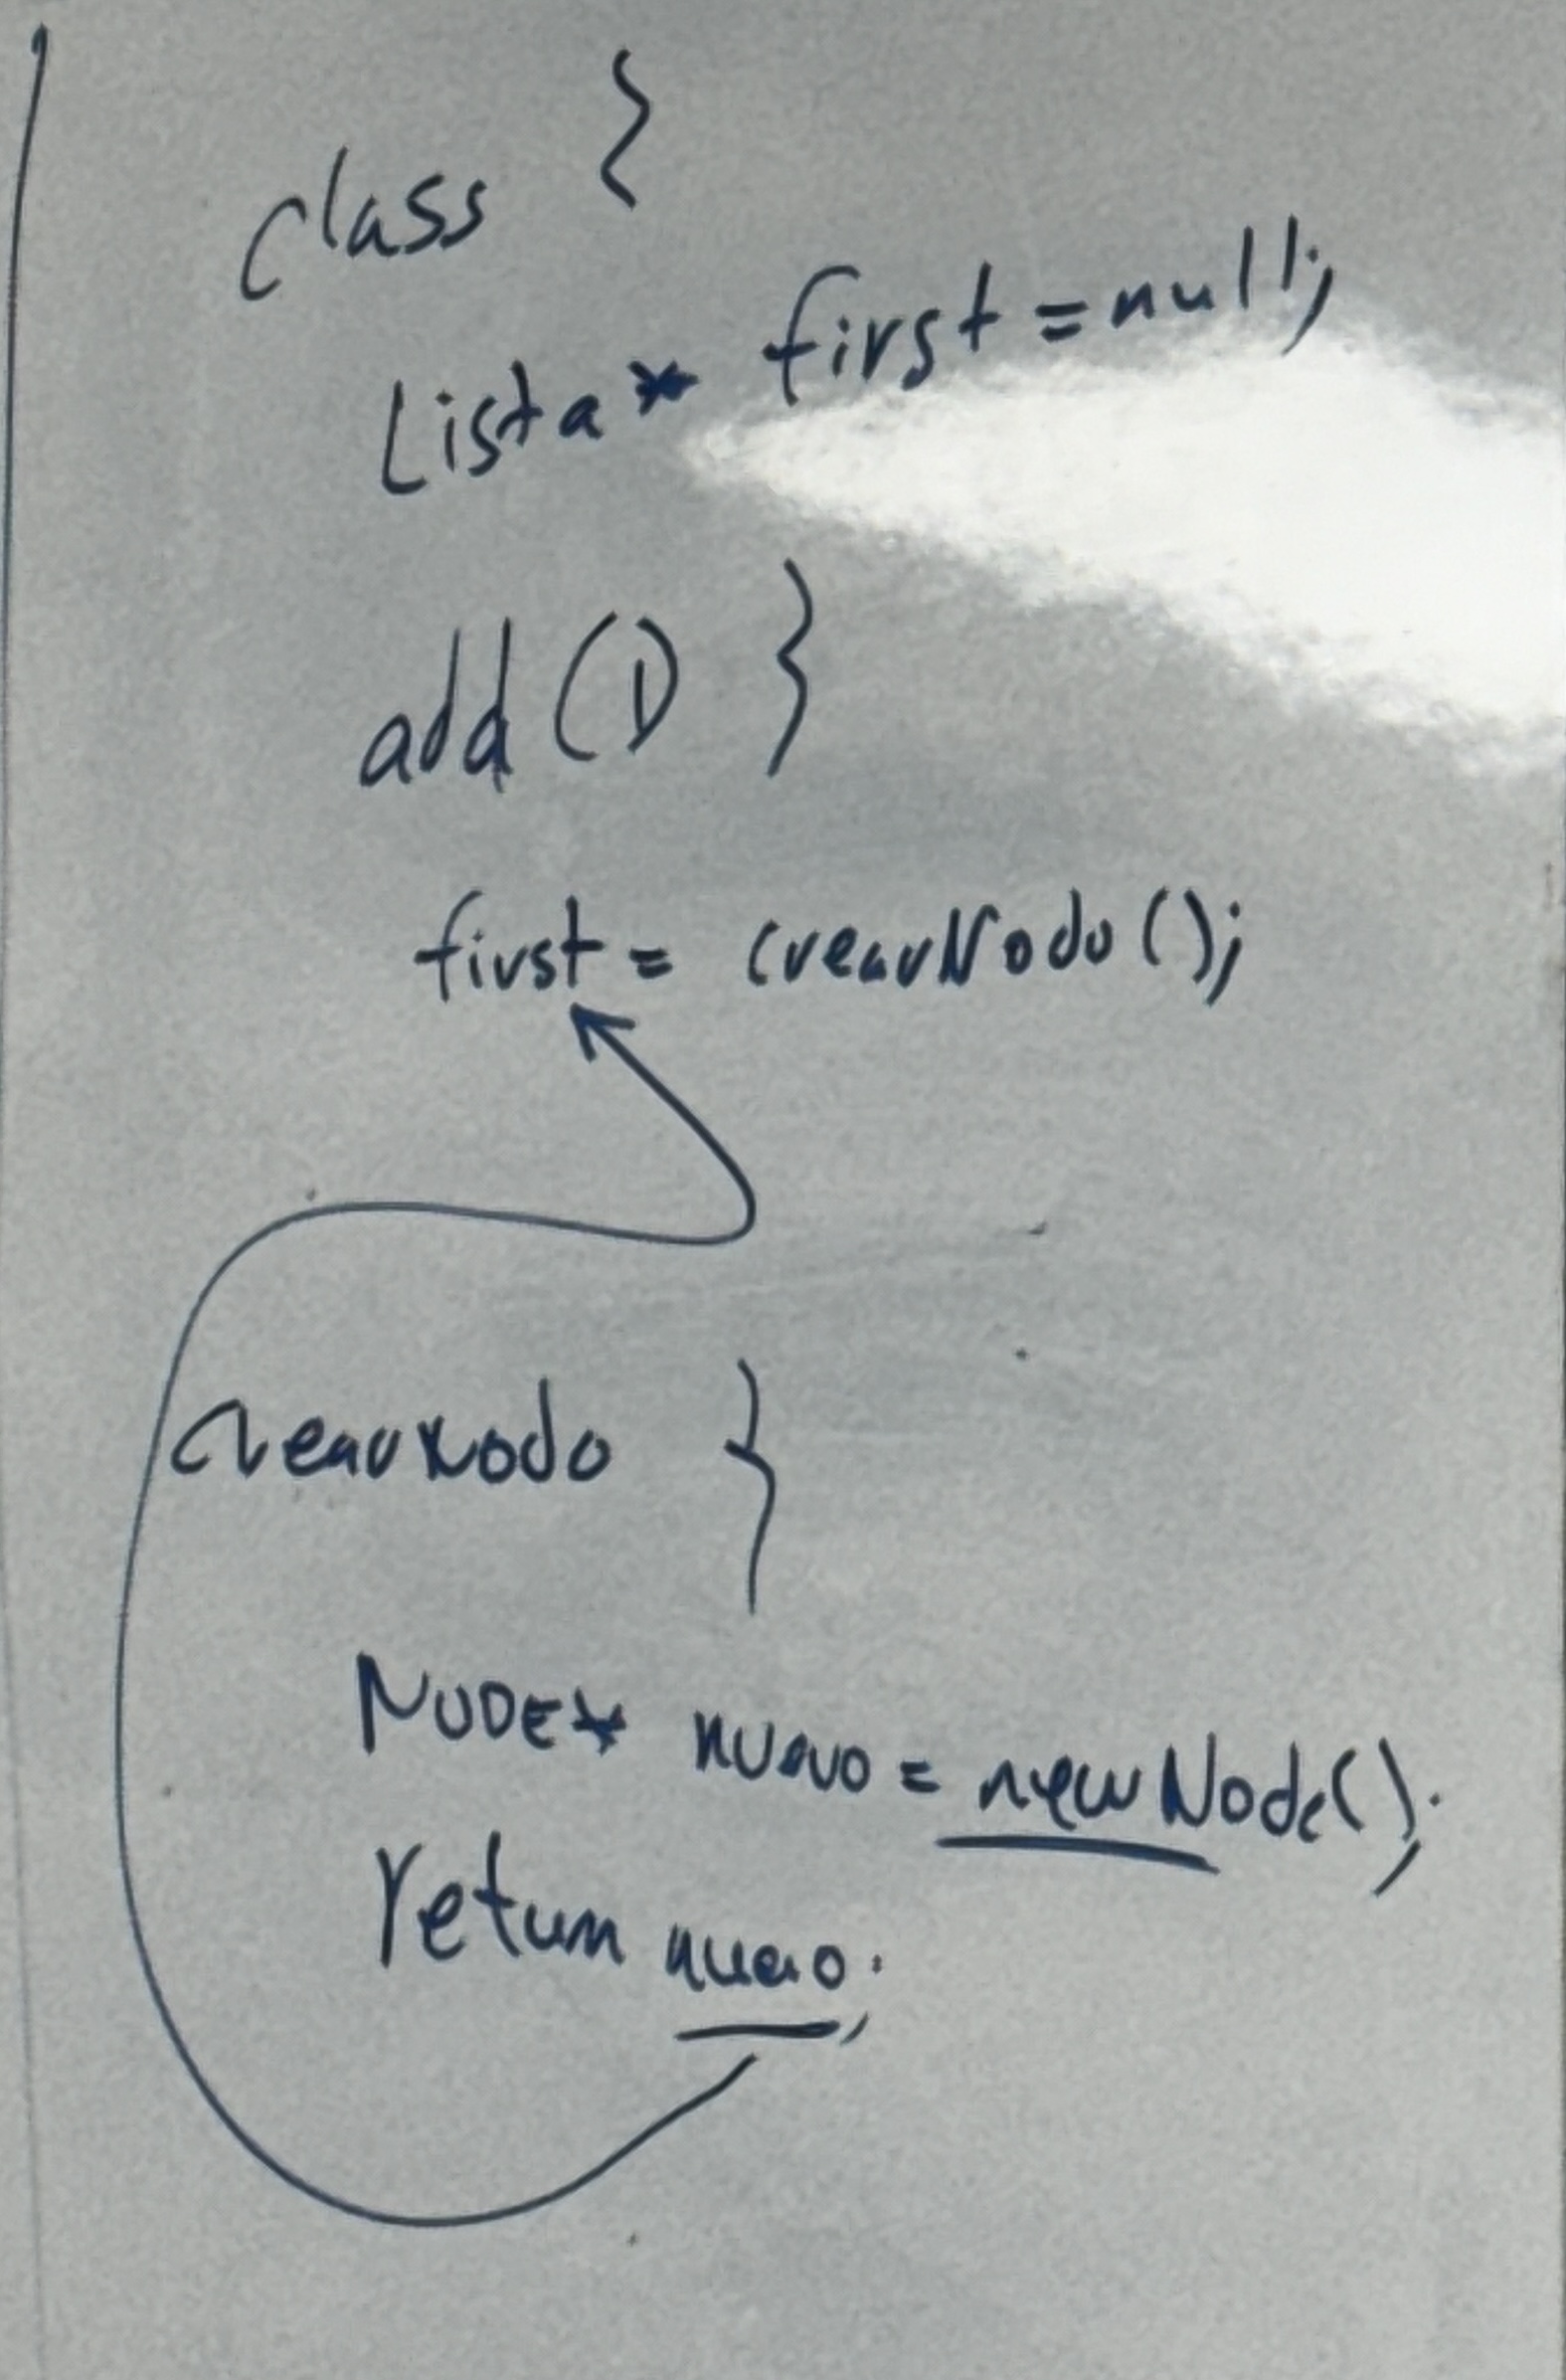 class {
Lista* first = null;
add(1) }
first = crearNodo();
crearNodo }
NODE* nuevo = new Node();
return nuevo;